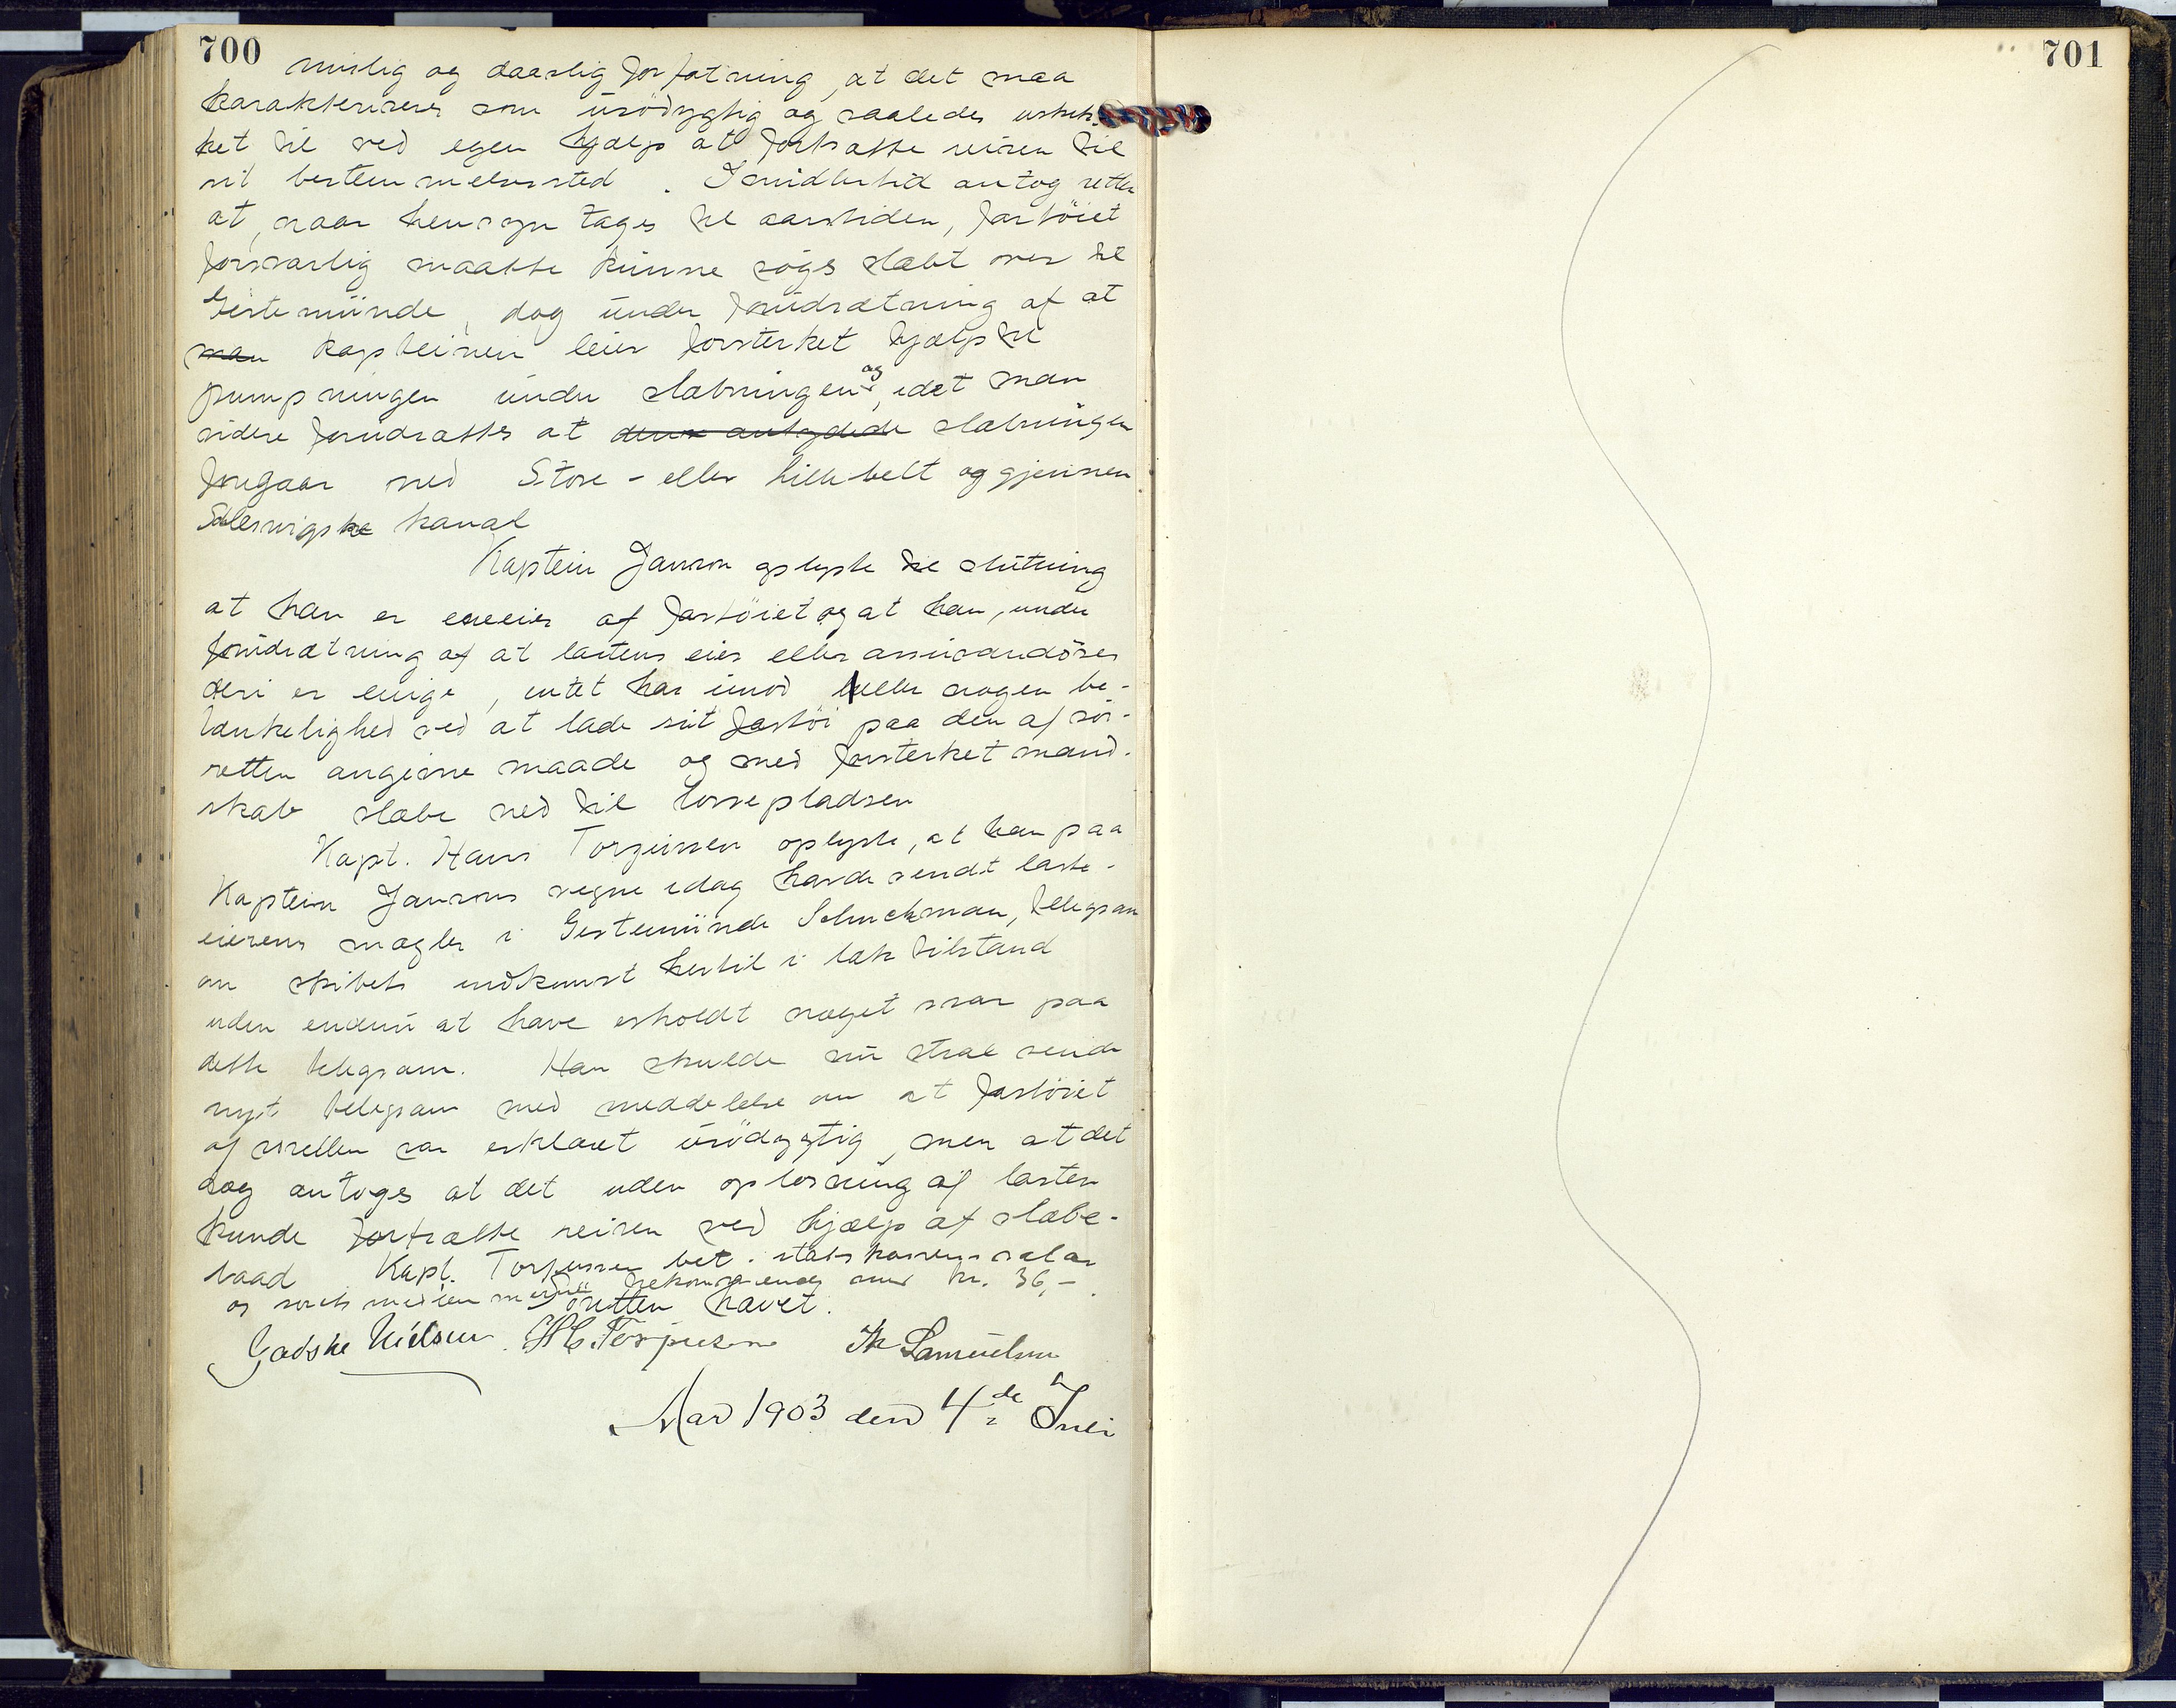 700
701
mislig og daarlig forfatning, at det maa
karakteriseres som usödygtig og saaledes uskik-
ket til ved egen hjælp at fortsætte reisen til
sit bestemmelsessted. Imidlertid antog retten
at, naar hensyn tages til aarstiden, fartöiet
forsvarlig maatte kunne söges slæbt over til
Gestemünde, dog under forudsætning af at
man kapteinen leier forsterket hjælp til
pumpningen under slæbningen og, idet man
videre forudsætter at den antydede slæbningen
foregaar ned Store- eller Lillebelt og gjennem
Slesvigske kanal
Kaptein Janson oplyste til slutning
at han er eneeier af fartöiet og at han, under
forudsætning af at lastens eier eller assurandörer
deri er enige, intet har imod eller nogen be-
tænkelighed ved at lade sit fartöi paa den af sö-
retten angivne maade og med forsterket mand-
skab slæbe ned til lossepladsen
Kapt. Hans Torjussen oplyste, at han paa
Kaptein Jansons vegne idag havde sendt laste-
eierens mægler i Gestemünde Schuckman, telegram
om skibets indkomst hertil i læk tilstand
uden endnu at have erholdt noget svar paa
dette telegram. Han skulde nu strax sende
nyt telegram med meddelelse om at fartöiet
af söretten var erklæret usödygtig, men at det
dog antoges at det uden oplosning af lasten
kunde fortsætte reisen ved hjælp af slæbe-
baad Kapt. Torjussen bet. statskassens salær
og mednes tilkommende med kr. 36,-
Söretten hævet.
Godske Nielsen. H C. Torjusen Th Samuelsen
Aar 1903 den 4de Juli